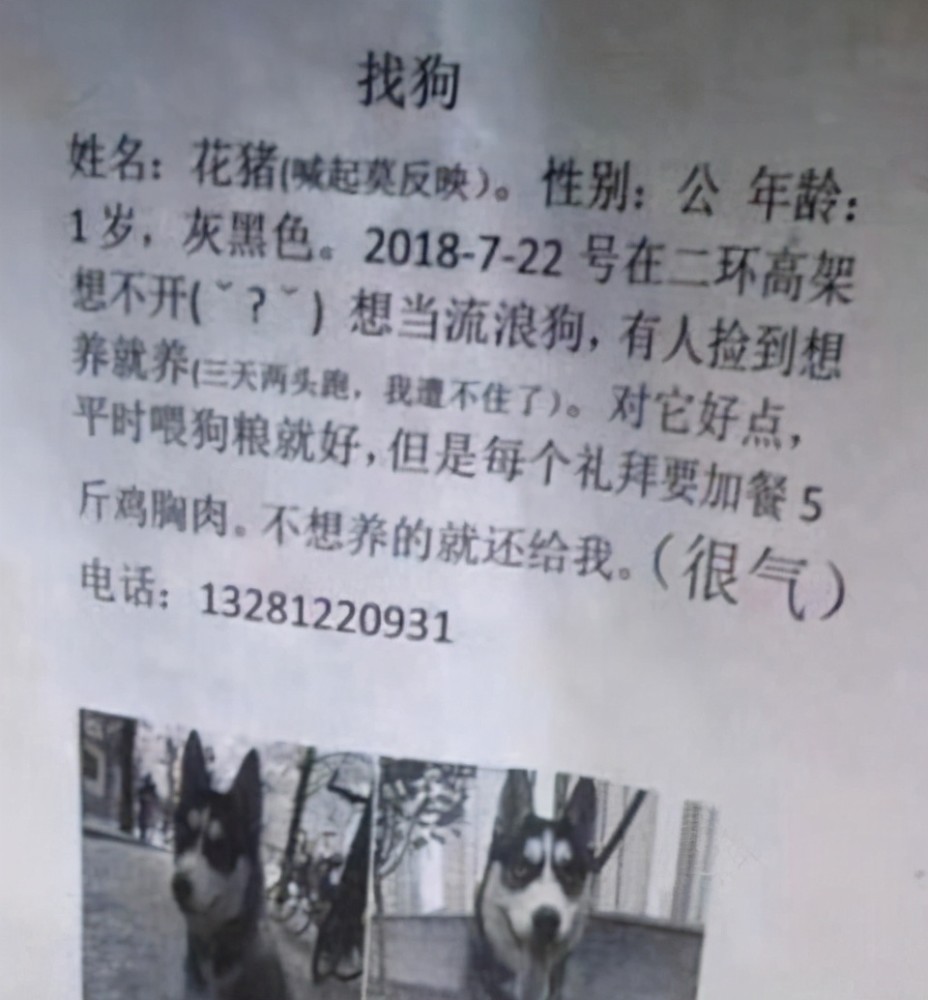 找狗
姓名：花猪(喊起莫反映)。性别：公 年龄：
1岁，灰黑色。2018-7-22 号在二环高架
想不开( ˇ ? ˇ ) 想当流浪狗，有人捡到想
养就养(三天两头跑，我遭不住了)。对它好点，
平时喂狗粮就好，但是每个礼拜要加餐 5
斤鸡胸肉。不想养的就还给我。（很气）
电话：13281220931